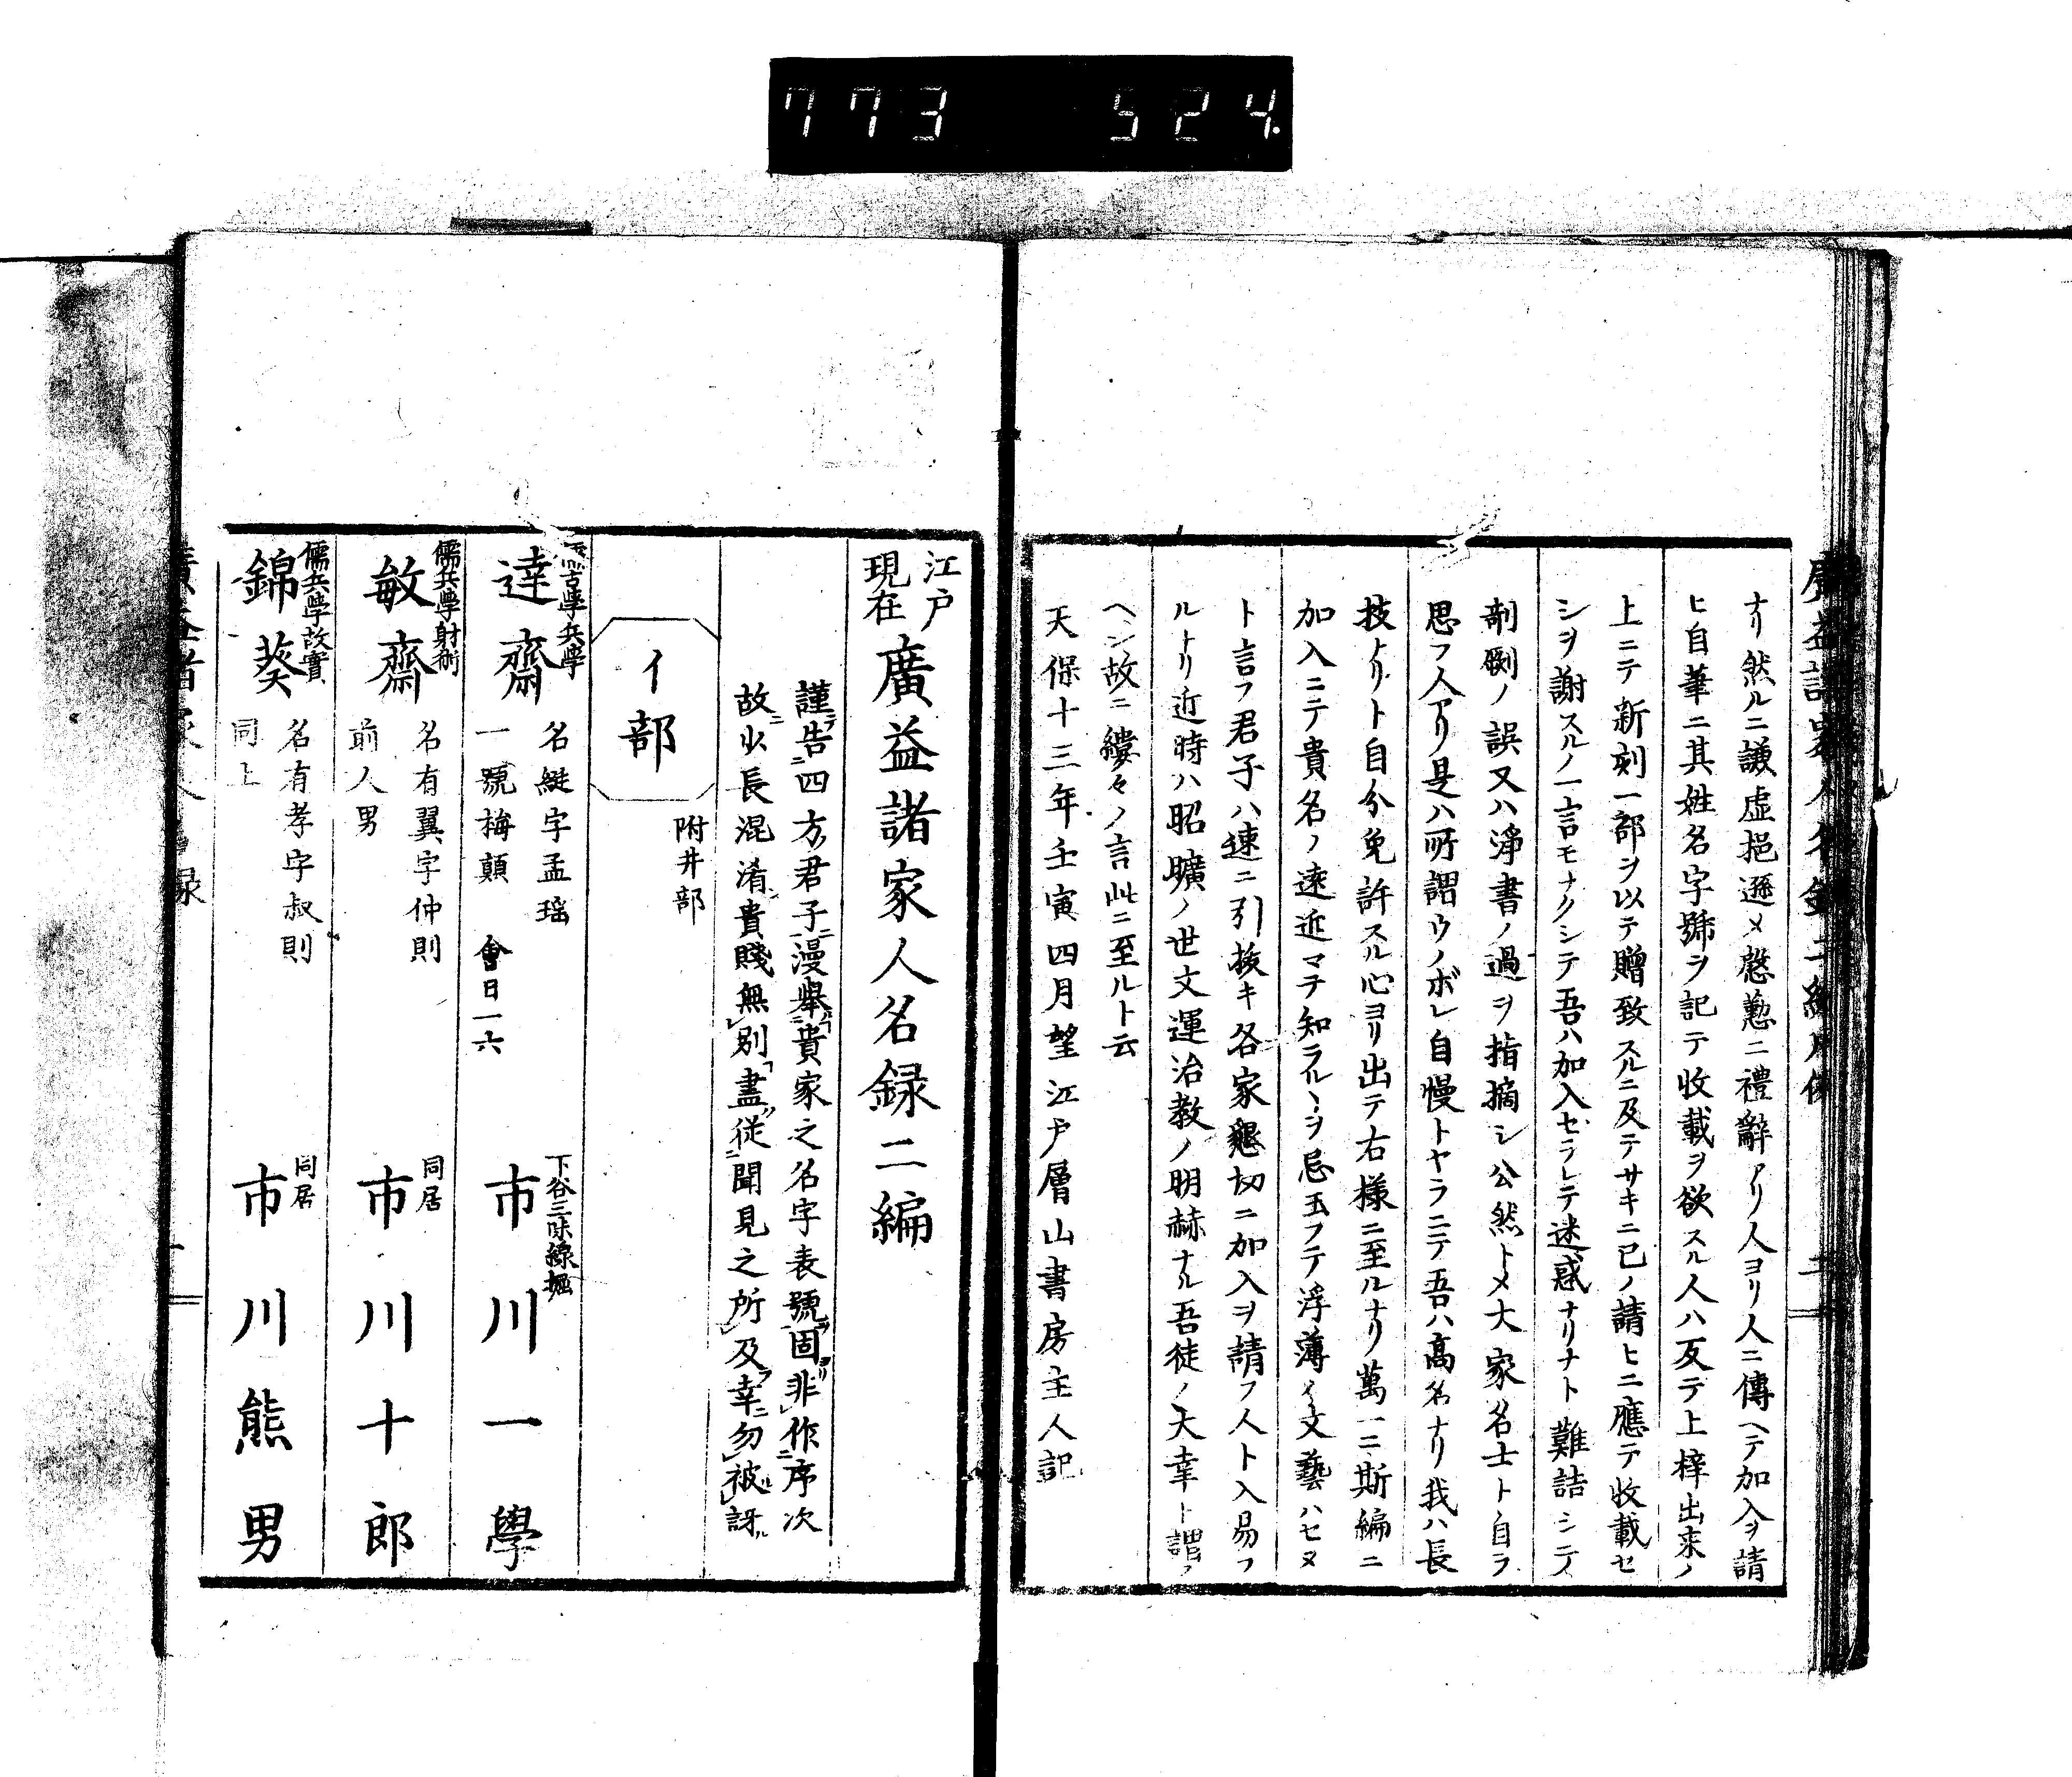 773 524.
ナリ然ルニ謙虚挹遜〆慇懃ニ禮辭アリ人ヨリ人ニ傳ヘテ加入ヲ請
ヒ自筆ニ其姓名字號ヲ記テ收載ヲ欲スル人ハ反テ上梓出来ノ
上ニテ新刻一部ヲ以テ贈致スルニ及テサキニ已ノ請ヒニ應テ收載セ
シヲ謝スルノ一言モナクシテ吾ハ加入セラレテ迷惑ナリナト難詰シ
剞劂ノ誤又ハ淨書ノ過ヲ指摘シ公然ト〆大家名士ト自ラ
思フ人アリ是ハ所謂ウノボレ自慢トヤラニテ吾ハ高名ナリ我ハ長
技ナリト自分免許スル心ヨリ出テ右様ニ至ルナリ萬一ニ斯編ニ
加入ニテ貴名ノ遠近マテ知ラルヽヲ忌玉フテ浮薄ノ文藝ハセヌ
ト言フ君子ハ速ニ引抜キ各家懇切ニ加入ヲ請フ人ト入易フ
ルトリ近時ハ昭曠ノ世文運治教ノ明赫ナル吾徒ノ大幸ト謂ツ
ヘシ故ニ縷々ノ言此ニ至ルト云
天保十三年壬寅四月望江戸層山書房主人記
江戸現在廣益諸家人名録二編
謹告四方君子漫舉貴家之名字表號固非作序次
故少長混淆貴賤無別盡從聞見之所及幸勿被訝
イ部
附井部
儒古學兵學
達齋
名繼字孟瑶
一號梅顛 會日一六
下谷三味線堀
市川一學
儒兵學射術
敏齋
名有翼字仲則
前人男
同居
市川十郎
儒兵學故實
錦葵
名有孝字叔則
同上
同居
市川熊男